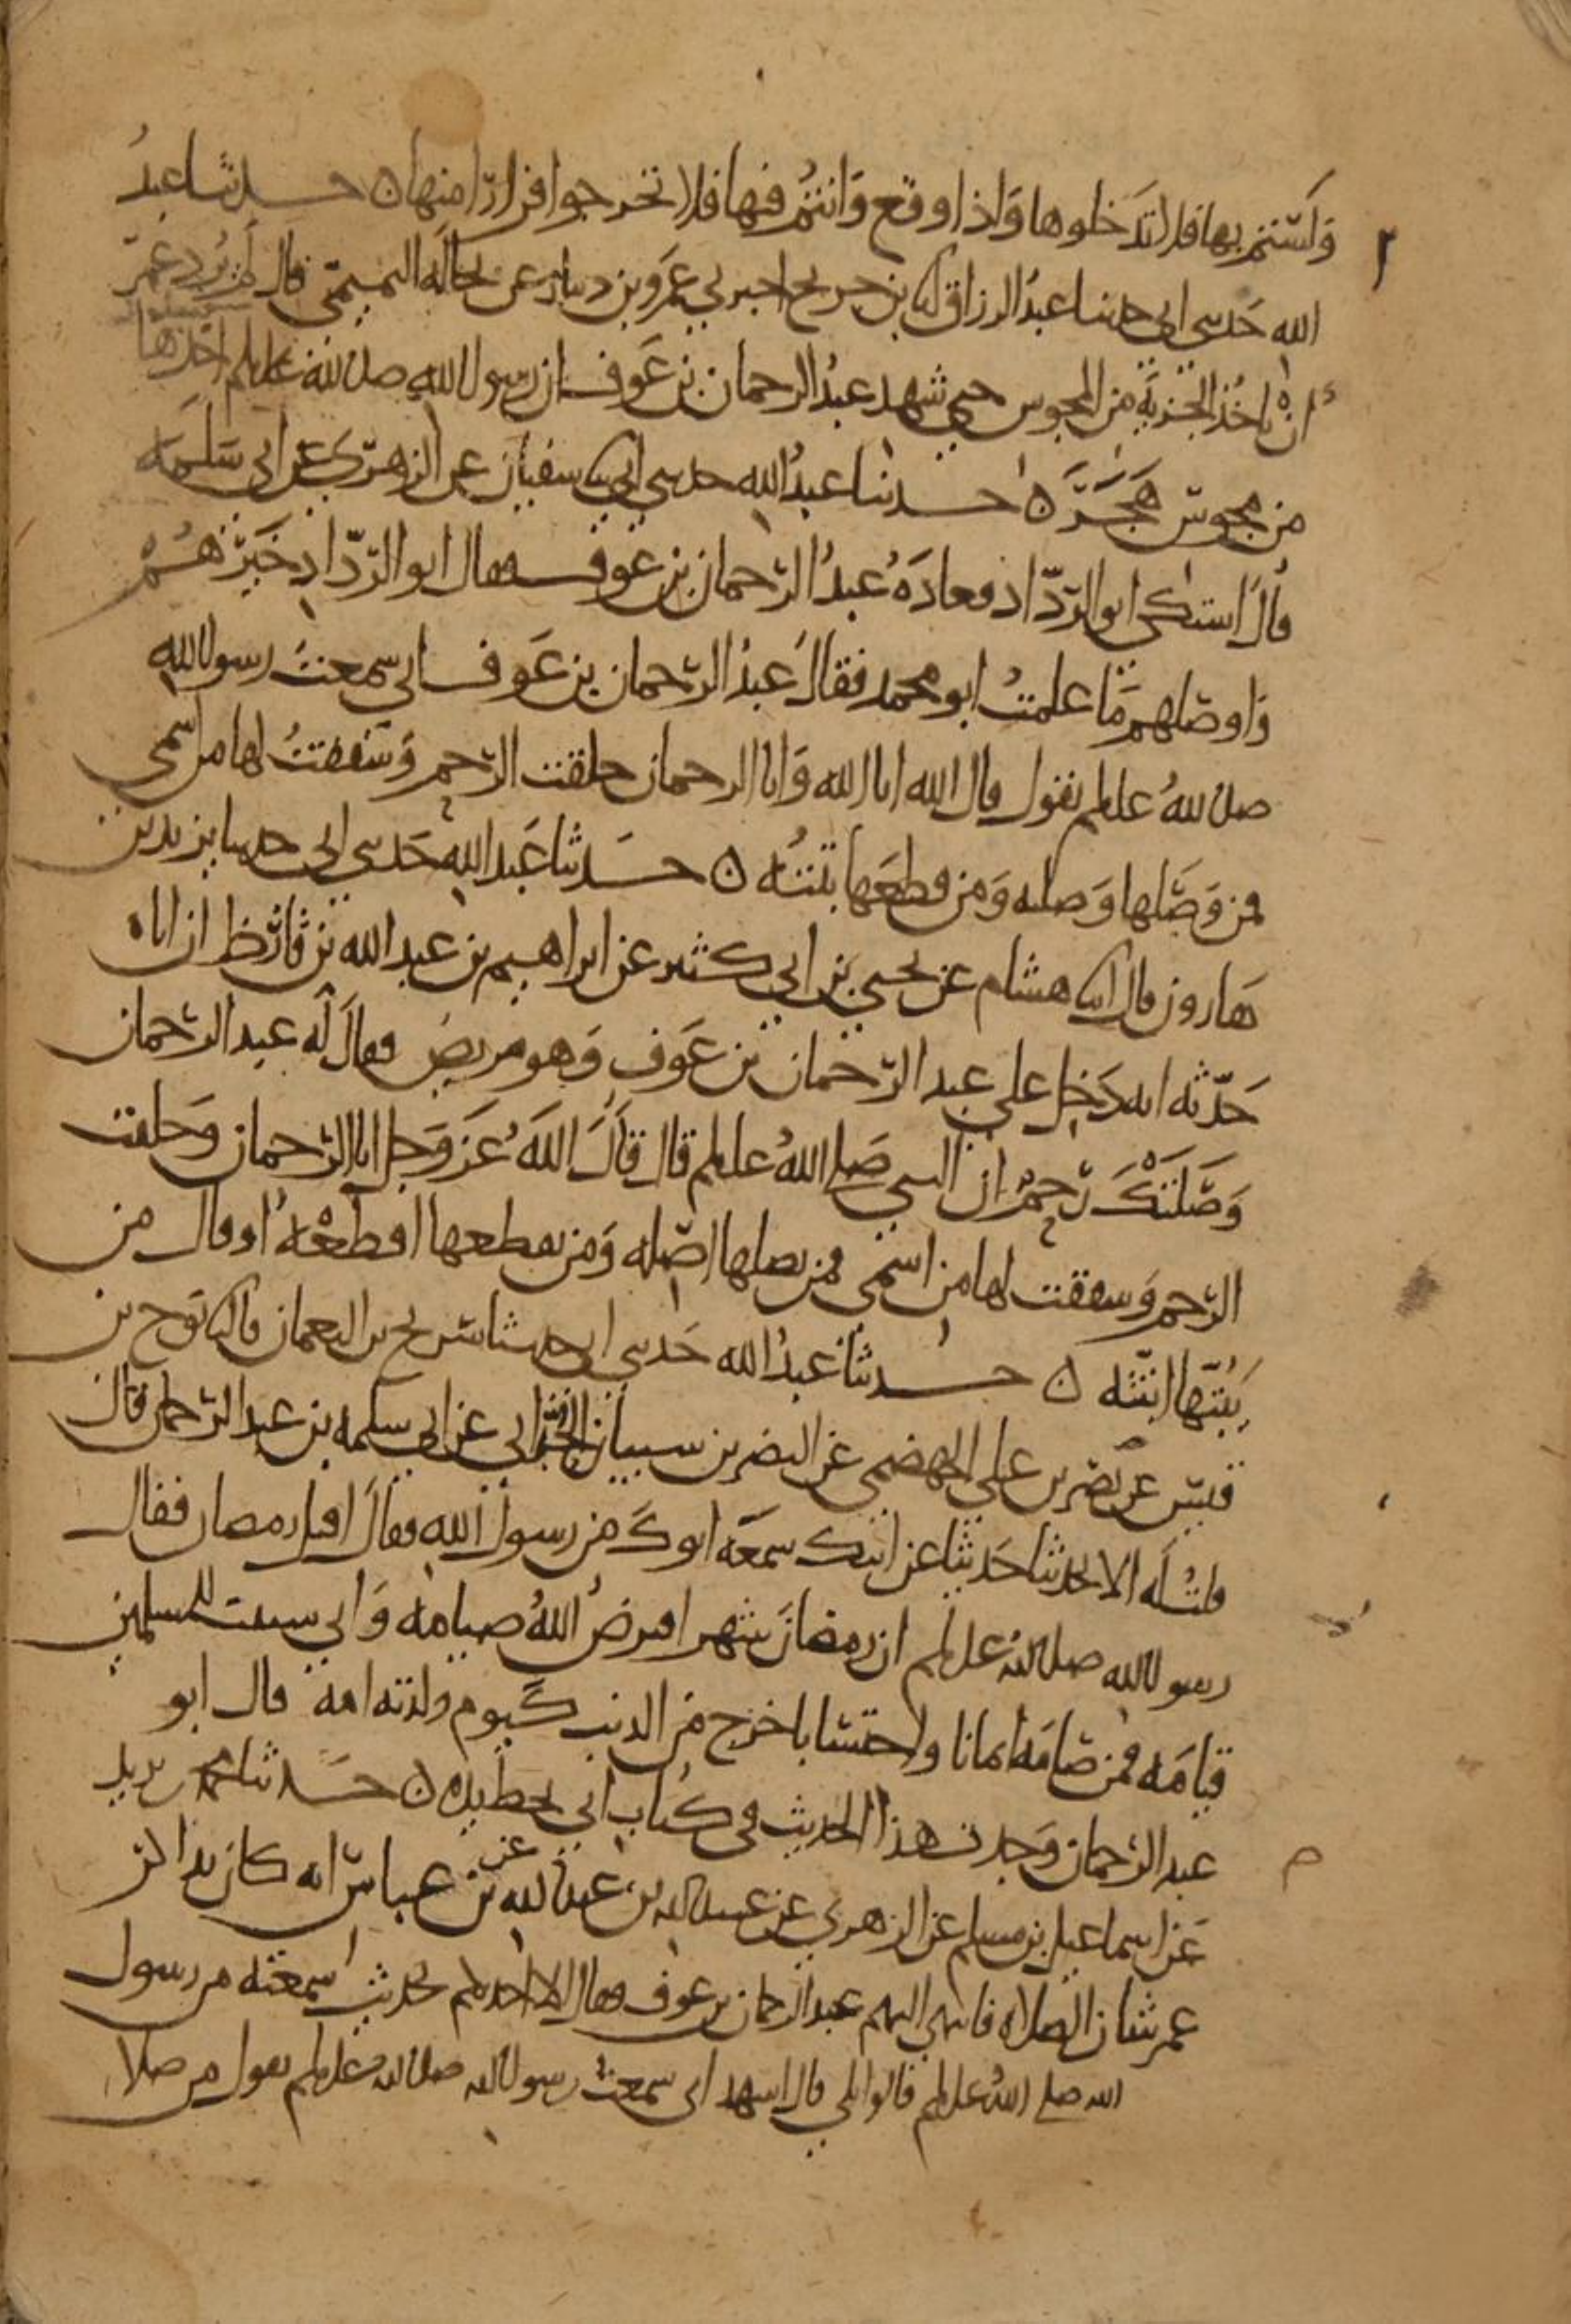 ولستم بها فلا تدخلوها واذا وقع وانتم فيها فلا تخرجوا فرارا منها ه حدثنا عبد
الله حدثني ابي حدثنا عبد الرزاق انا ابن جريج اخبرني عمرو بن دينار عن بجالة التميمي قال لم يرد عمر
ان ياخذ الجزية من المجوس حتى شهد عبد الرحمان بن عوف ان رسول الله صلى الله عليه وسلم اخذها
من مجوس هجر ه حدثنا عبد الله حدثني ابي نا سفيان عن الزهري عن ابي سلمة
قال اشتكى ابو الرداد فعاده عبد الرحمان بن عوف فقال ابو الرداد خيرهم
واوصلهم ما علمت ابو محمد فقال عبد الرحمان بن عوف اني سمعت رسول الله
صلى الله عليه وسلم يقول قال الله انا الله وانا الرحمان خلقت الرحم وشققت لها من اسمي
فمن وصلها وصلته ومن قطعها بتته ه حدثنا عبد الله حدثني ابي حدثنا يزيد بن
هارون قال انا هشام عن يحيى بن ابي كثير عن ابراهيم بن عبد الله بن قارظ ان اباه
حدثه انه دخل على عبد الرحمان بن عوف وهو مريض فقال له عبد الرحمان
وصلتك رحم ان النبي صلى الله عليه وسلم قال قال الله عز وجل انا الرحمان وخلقت
الرحم وشققت لها من اسمي فمن يصلها اصله ومن يقطعها اقطعه او قال من
يبتها ابتته ه حدثنا عبد الله حدثني ابي حدثنا سريج بن النعمان قال نا نوح بن
قيس عن نصر بن علي الجهضمي عن النضر بن شيبان الحداني عن ابي سلمة بن عبد الرحمان قال
قلت له الا تحدثنا حديثا عن ابيك سمعه ابوك من رسول الله فقال اقبل رمضان فقال
رسول الله صلى الله عليه وسلم ان رمضان شهر افترض الله صيامه واني سننت للمسلمين
قيامه فمن صامه ايمانا واحتسابا خرج من الذنب كيوم ولدته امه قال ابو
عبد الرحمان وجدت هذا الحديث في كتاب ابي بخط يده ه حدثنا محمد بن يزيد
عن اسماعيل بن مسلم عن الزهري عن عبيد الله بن عبد الله عن بن عباس انه كان يذاكر
عمر شان الصلاة فانتهى اليهم عبد الرحمان بن عوف فقال الا احدثكم بحديث سمعته من رسول
الله صلى الله عليه وسلم قالوا بلى قال اشهد اني سمعت رسول الله صلى الله عليه وسلم يقول من صلا